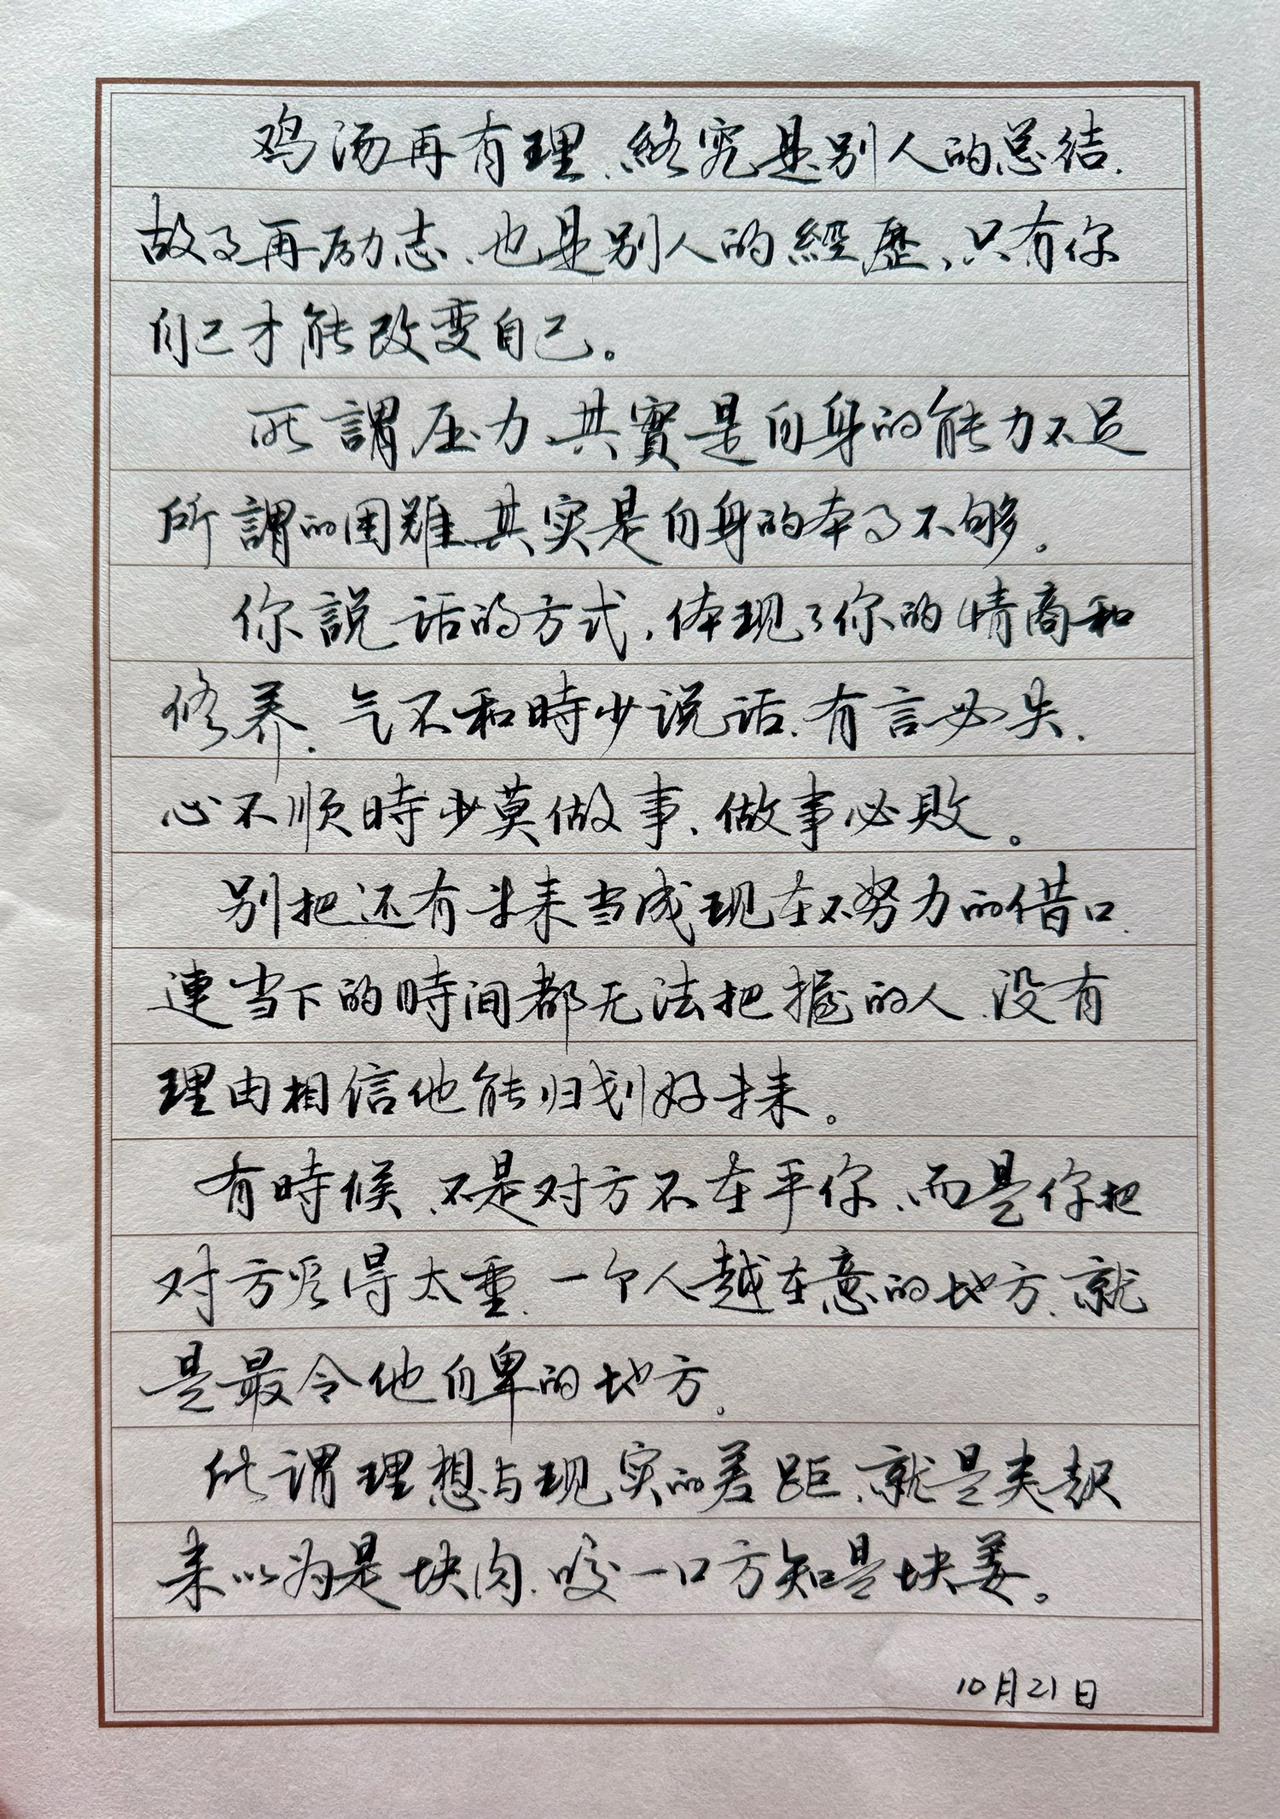 鸡汤再有理、终究是别人的总结.
故事再励志、也是别人的經歷、只有你
自己才能改变自己。
所謂压力、其實是自身的能力不足
所謂的困难、其实是自身的本事不够。
你説话的方式，体现了你的情商和
修养.气不和時少说话.有言必失.
心不顺時少莫做事、做事必败。
别把还有未来当成现在不努力的借口.
連当下的時间都无法把握的人.没有
理由相信他能归划好未来。
有時候、不是对方不在乎你、而是你把
对方看得太重.一个人越在意的地方.就
是最令他自卑的地方。
所谓理想与现实的差距、就是夹起
来以为是块肉.咬一口方知是块姜。
10月21日